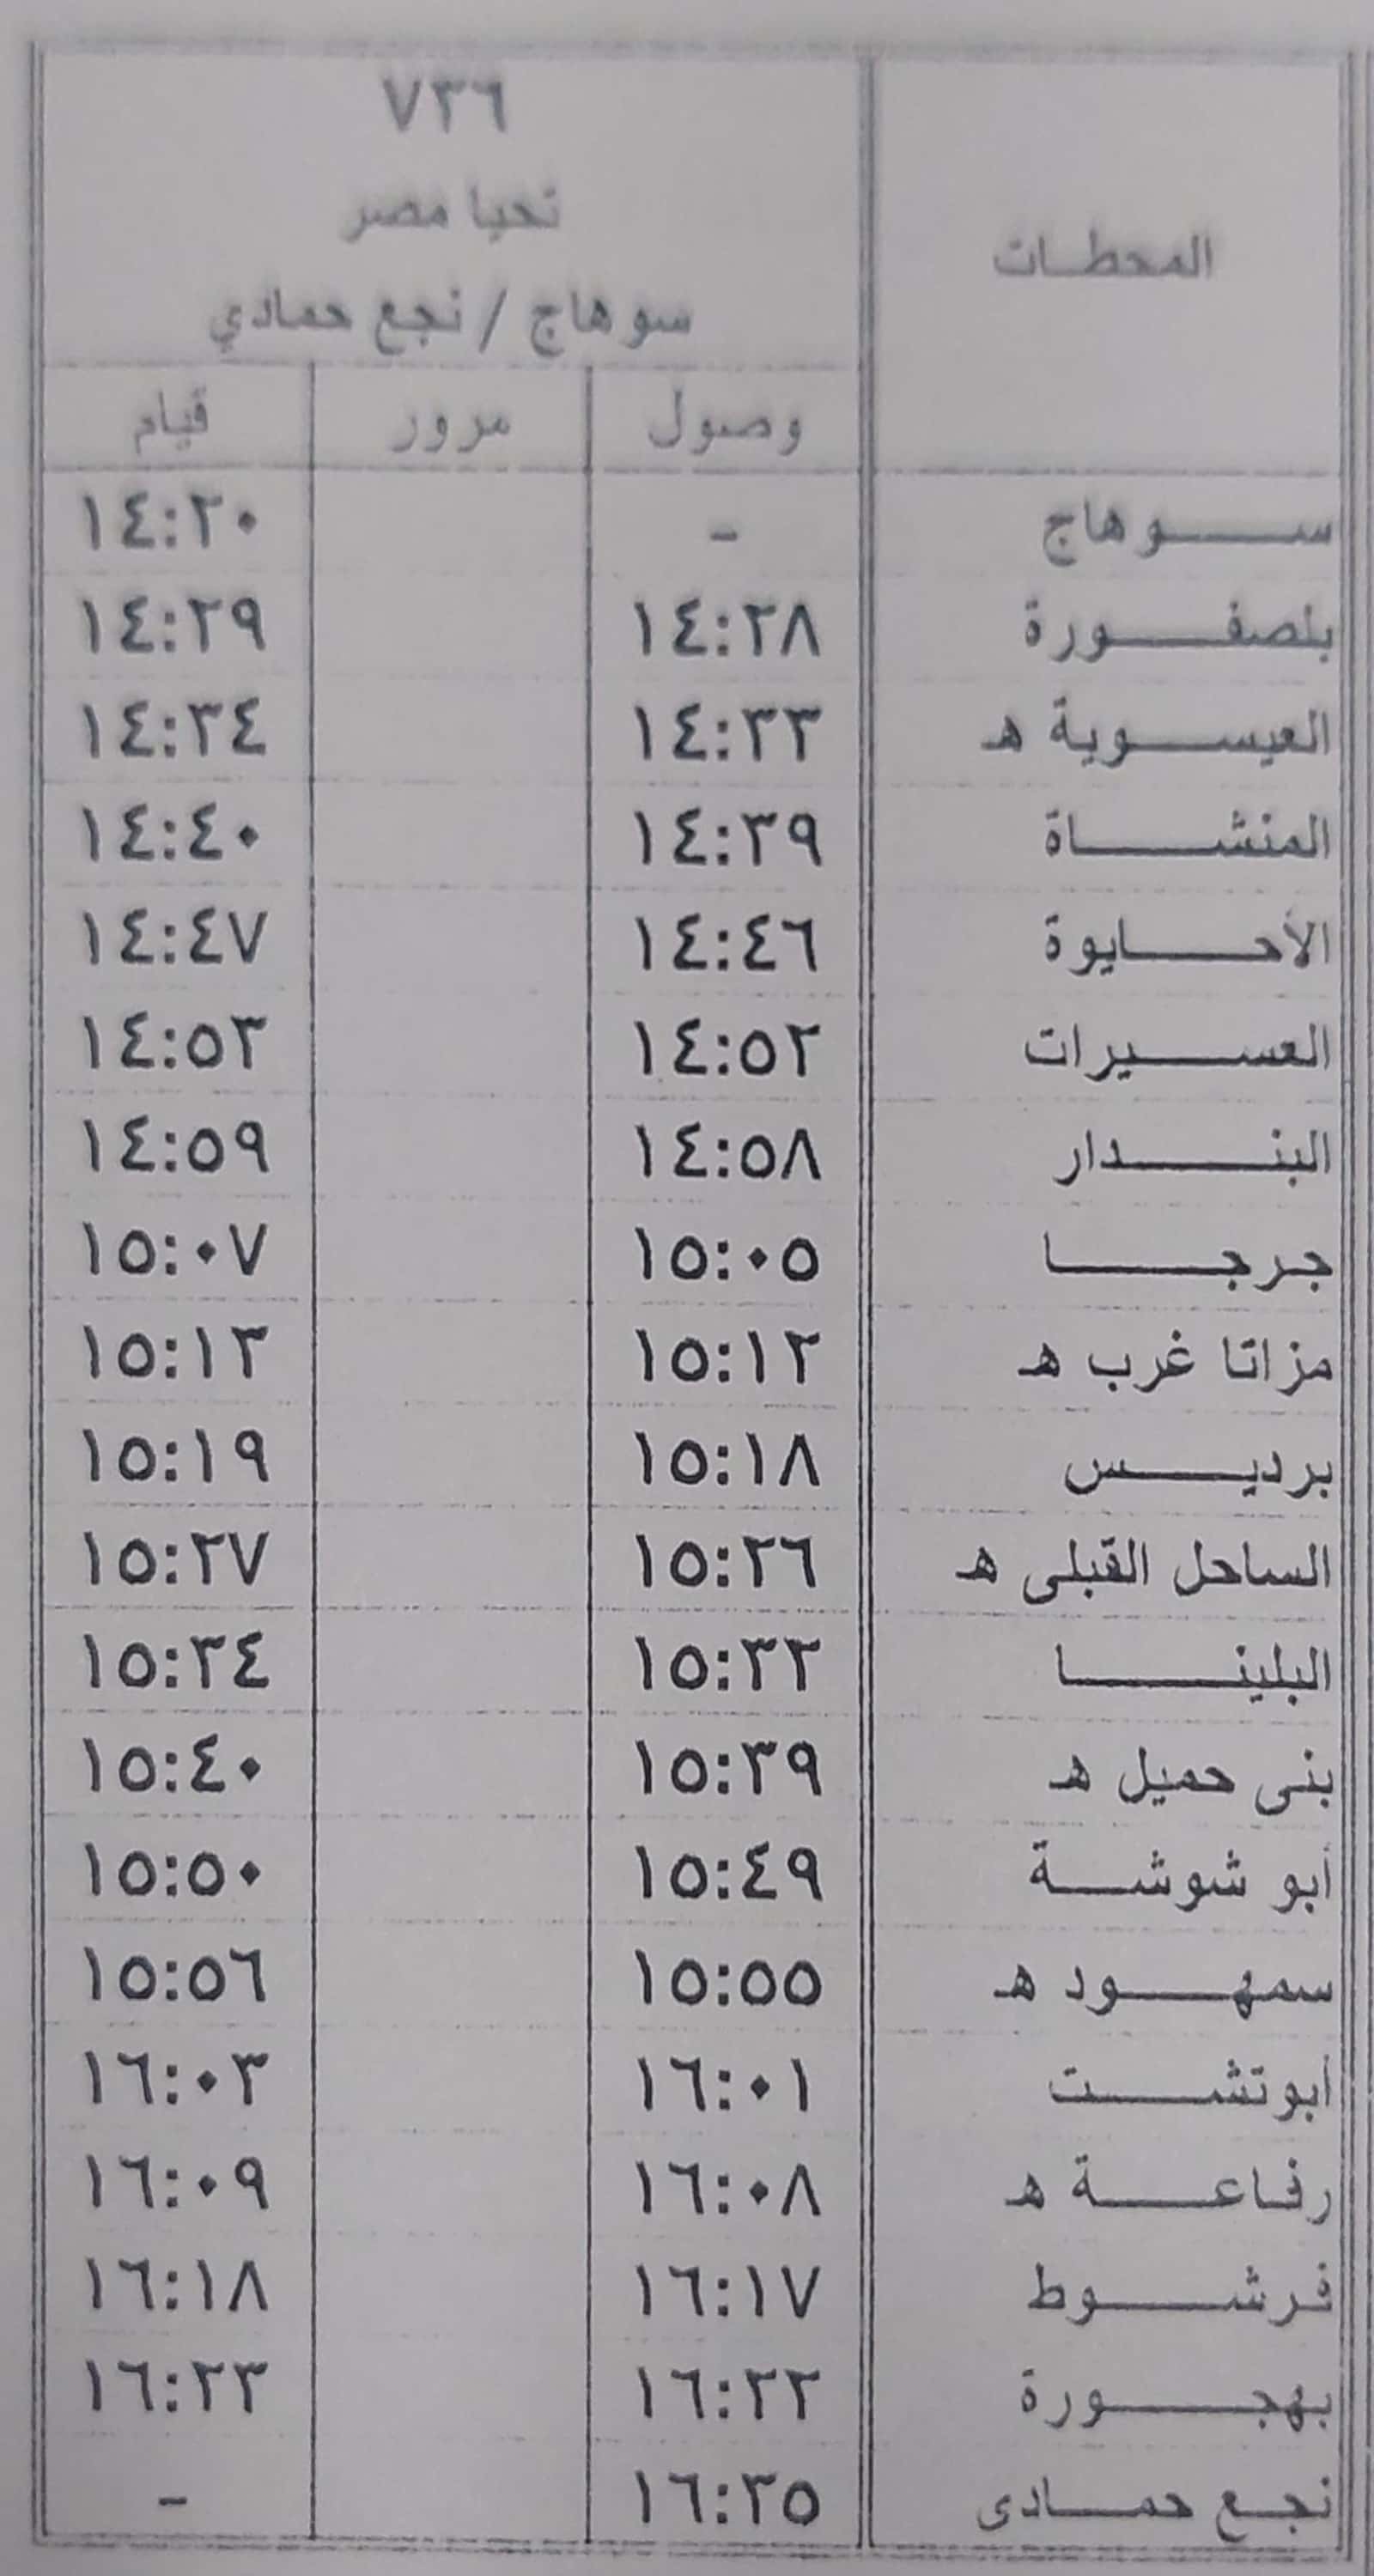 ٧٣٦
تحيا مصر
سوهاج / نجع حمادي
المحطات
وصول مرور قيام
سوهاج - ١٤:٢٠
بلصفورة ١٤:٢٨ ١٤:٢٩
العيسوية هـ ١٤:٣٣ ١٤:٣٤
المنشاة ١٤:٣٩ ١٤:٤٠
الأحايوة ١٤:٤٦ ١٤:٤٧
العسيرات ١٤:٥٢ ١٤:٥٣
البندار ١٤:٥٨ ١٤:٥٩
جرجا ١٥:٠٥ ١٥:٠٧
مزاتا غرب هـ ١٥:١٢ ١٥:١٣
برديس ١٥:١٨ ١٥:١٩
الساحل القبلى هـ ١٥:٢٦ ١٥:٢٧
البلينا ١٥:٣٢ ١٥:٣٤
بنى حميل هـ ١٥:٣٩ ١٥:٤٠
أبو شوشة ١٥:٤٩ ١٥:٥٠
سمهود هـ ١٥:٥٥ ١٥:٥٦
أبوتشت ١٦:٠١ ١٦:٠٣
رفاعة هـ ١٦:٠٨ ١٦:٠٩
فرشوط ١٦:١٧ ١٦:١٨
بهجورة ١٦:٢٢ ١٦:٢٣
نجع حمادى ١٦:٣٥ -